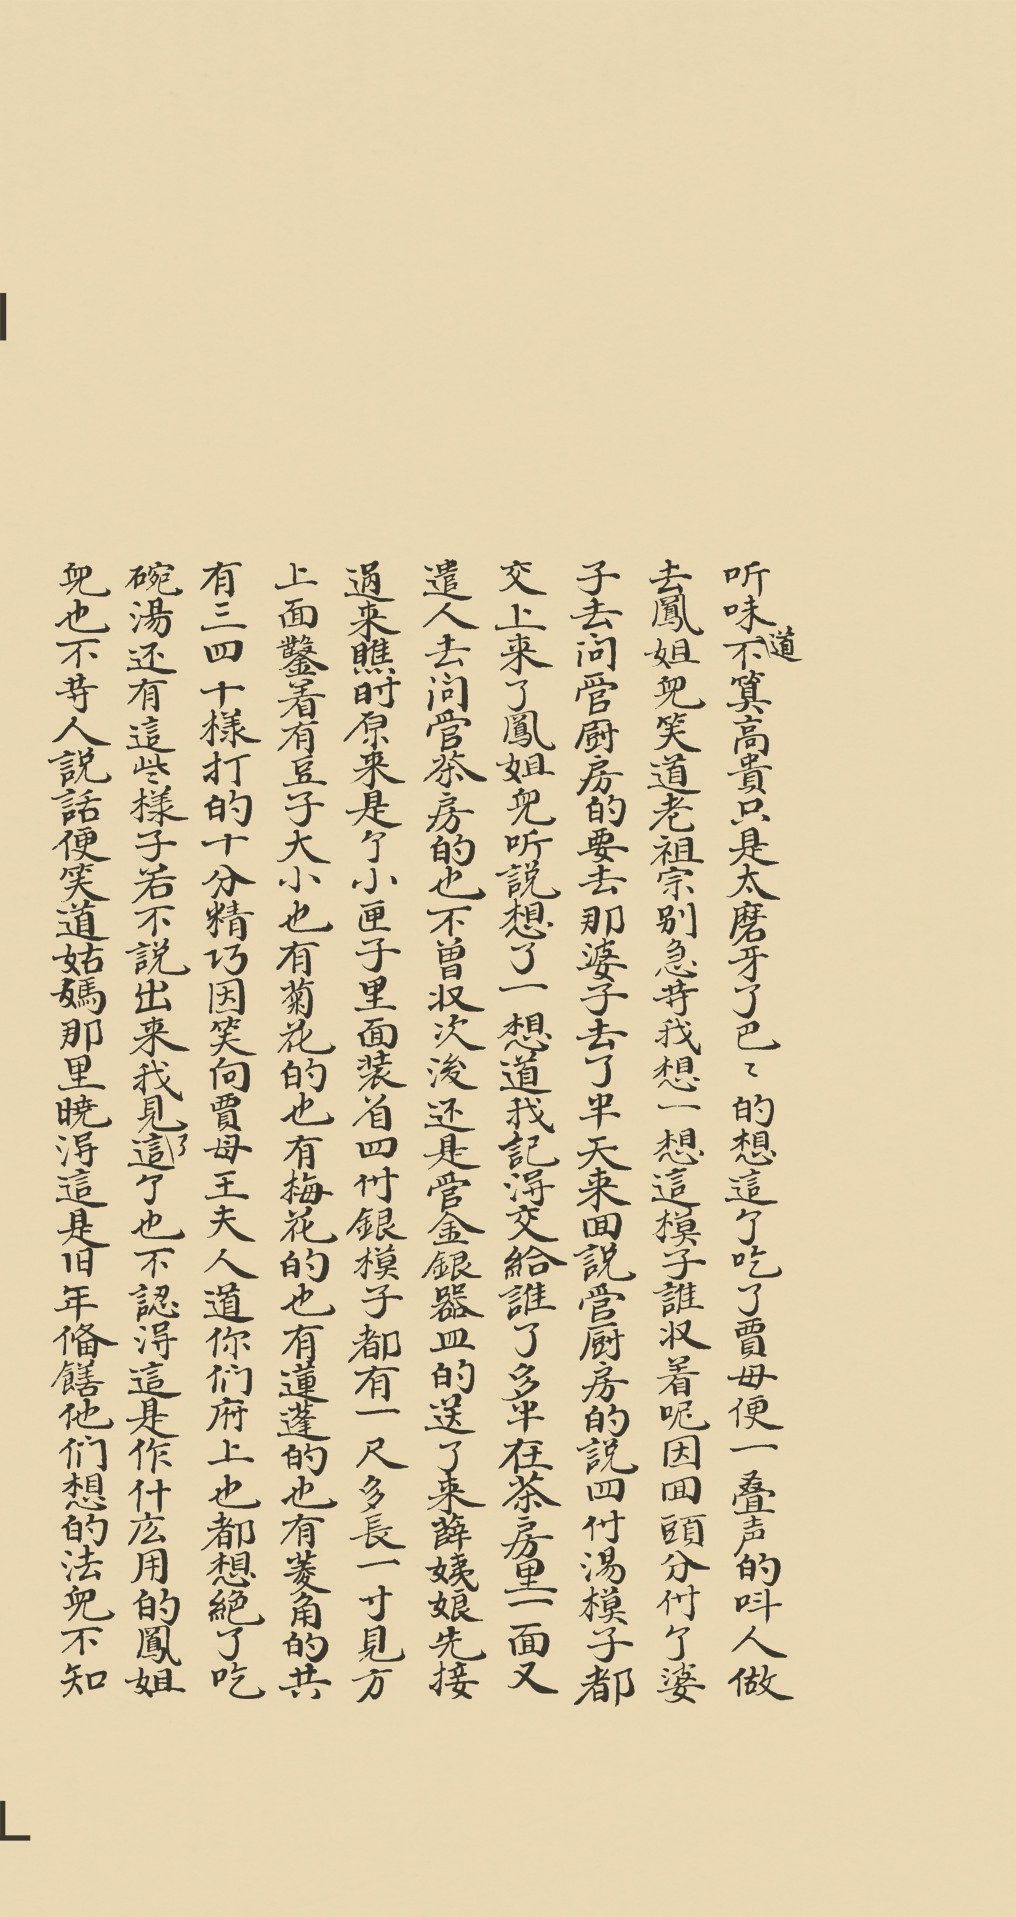 听味道不算高貴只是太磨牙了巴〻的想這个吃了賈母便一叠声的呌人做
去鳳姐兒笑道老祖宗别急等我想一想這模子誰収着呢因囬頭分付个婆
子去问管厨房的要去那婆子去了半天来囬説管厨房的説四付湯模子都
交上来了鳳姐兒听説想了一想道我記得交給誰了多半在茶房里一面又
遣人去问管茶房的也不曾収次後还是管金銀器皿的送了来薛姨娘先接
過来瞧时原来是个小匣子里面装着四付銀模子都有一尺多長一寸見方
上面鑿着有豆子大小也有菊花的也有梅花的也有蓮蓬的也有菱角的共
有三四十樣打的十分精巧因笑向賈母王夫人道你们府上也都想絶了吃
碗湯还有這些樣子若不説出来我見了這个也不認得這是作什庅用的鳳姐
兒也不等人説話便笑道姑媽那里曉得這是旧年偹饍他们想的法兒不知